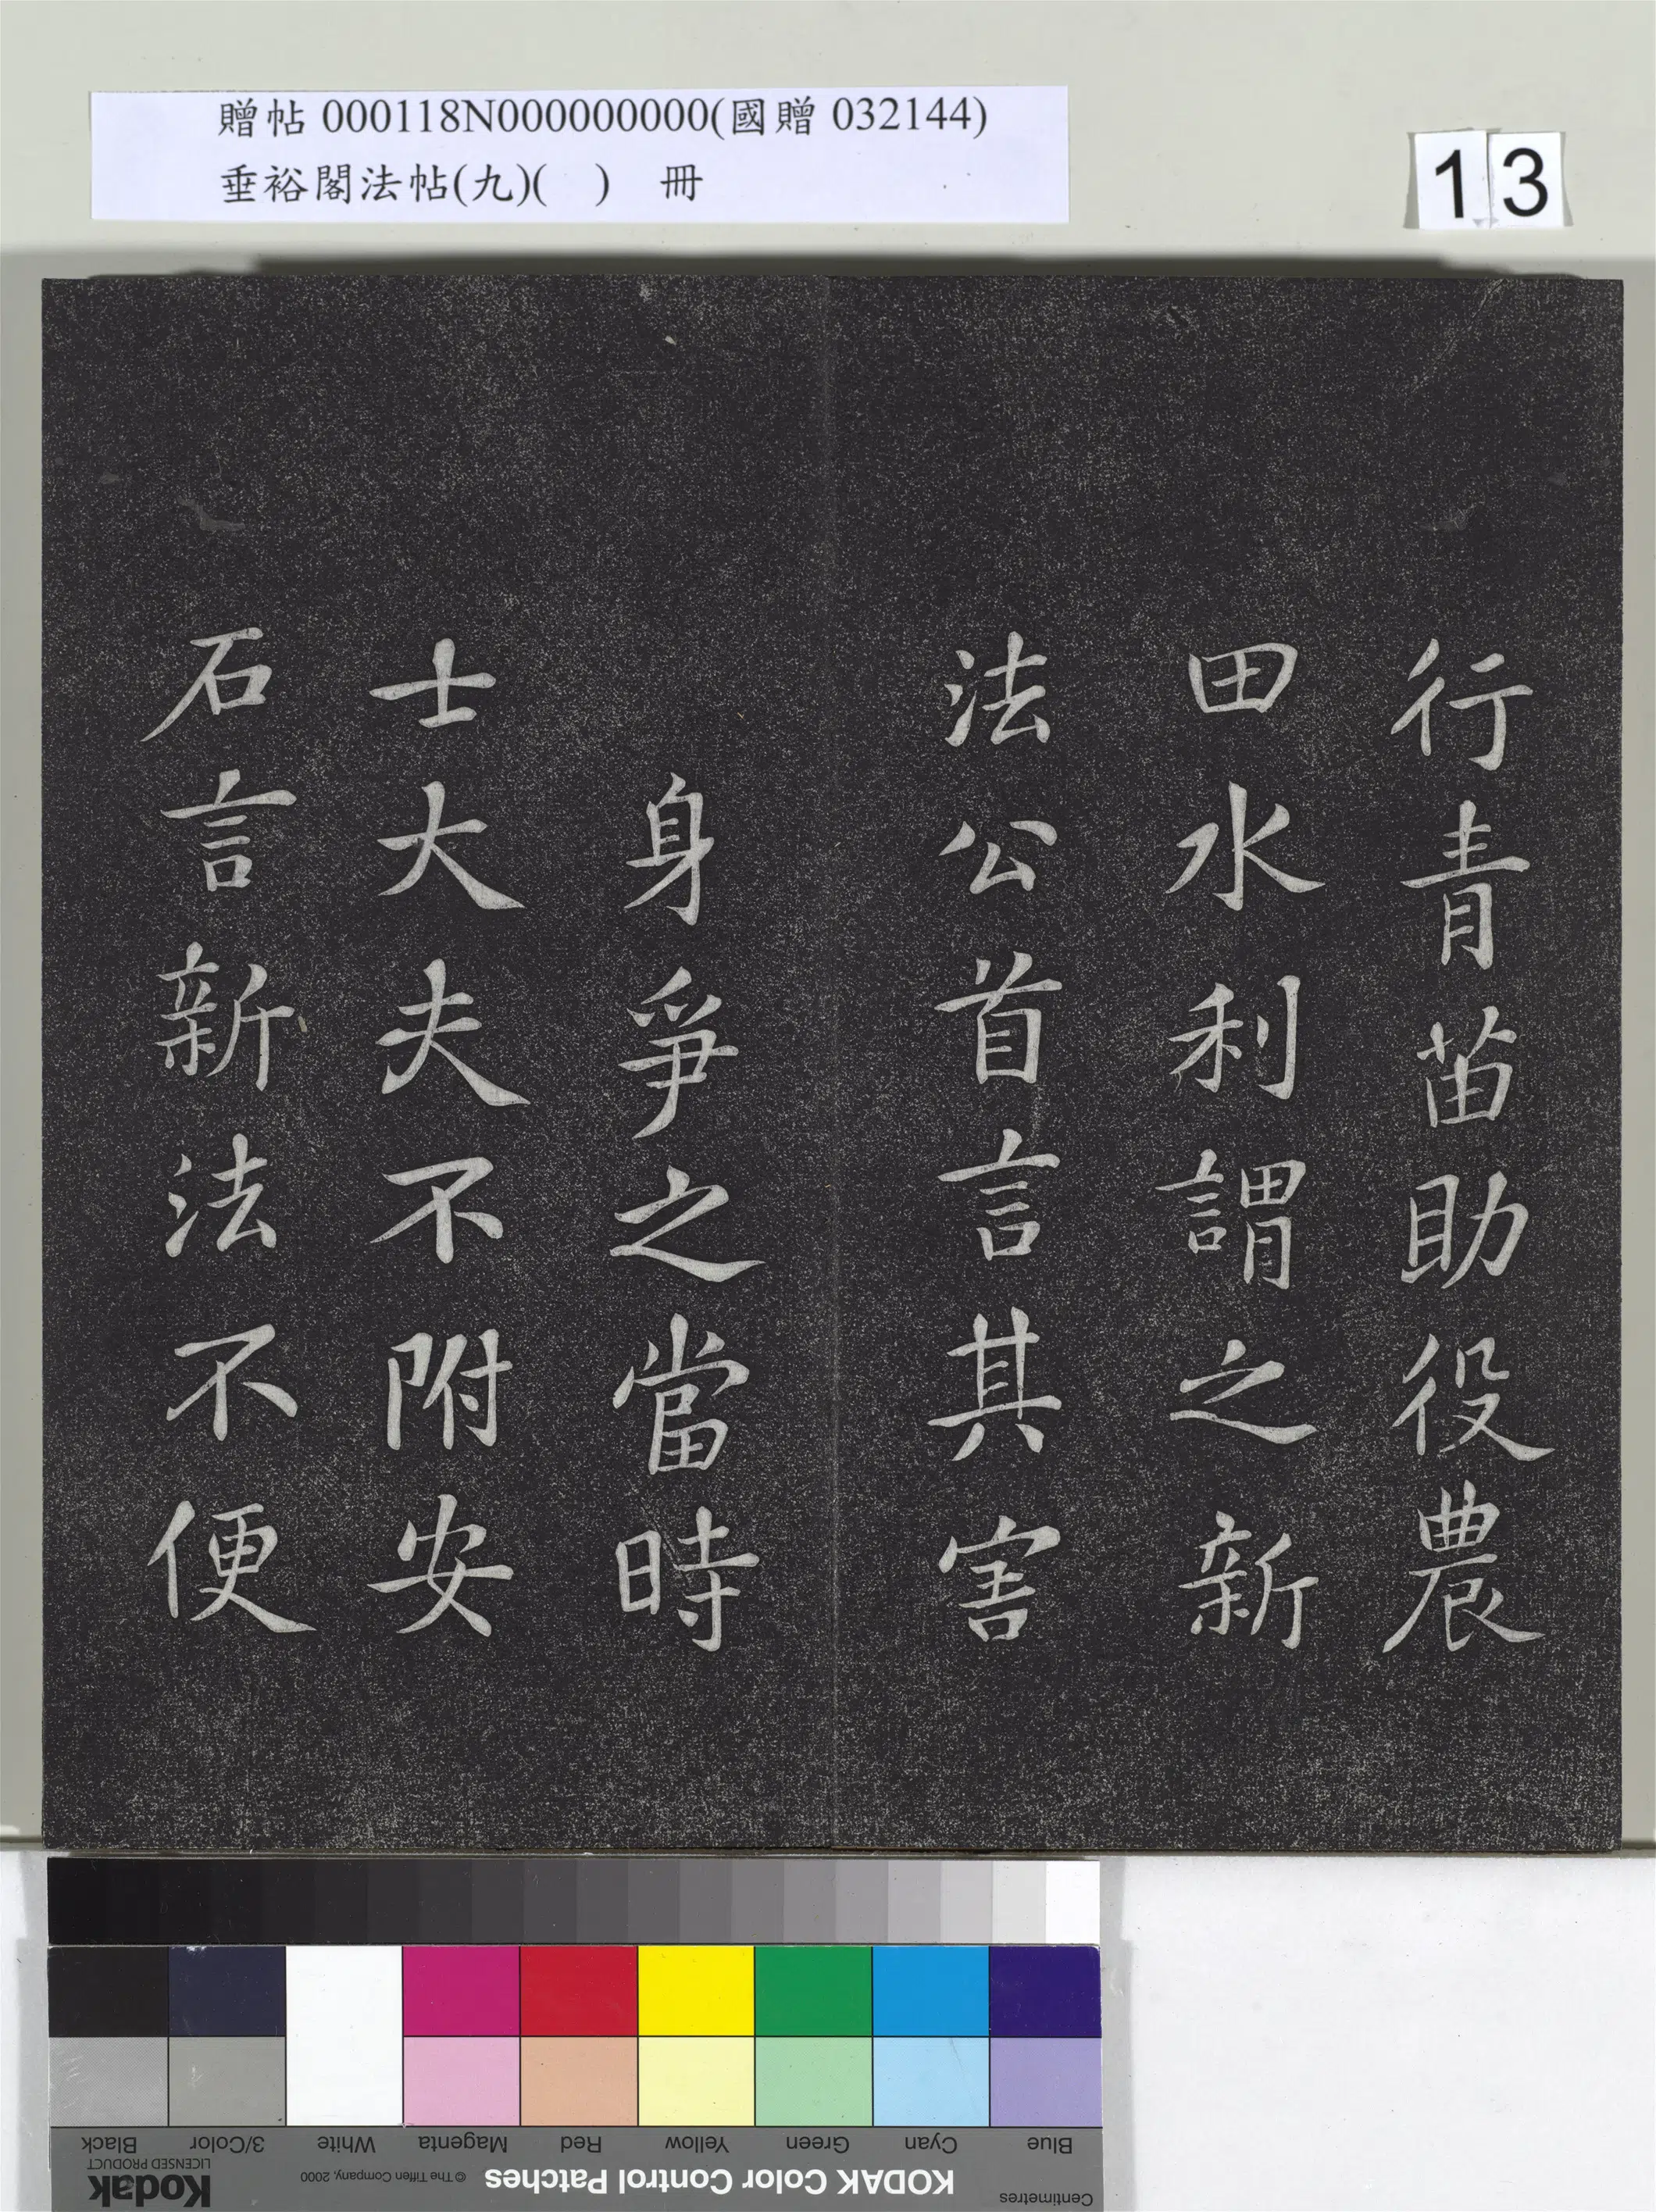 贈帖 000118N000000000(國贈 032144)
垂裕閣法帖(九)(　)　冊
13
行青苗助役農
田水利謂之新
法公首言其害
身爭之當時
士大夫不附安
石言新法不便
Black
3/Color
White
Magenta
Red
Yellow
Green
Cyan
Blue
Kodak
LICENSED PRODUCT
© The Tiffen Company, 2000
KODAK Color Control Patches
Centimetres